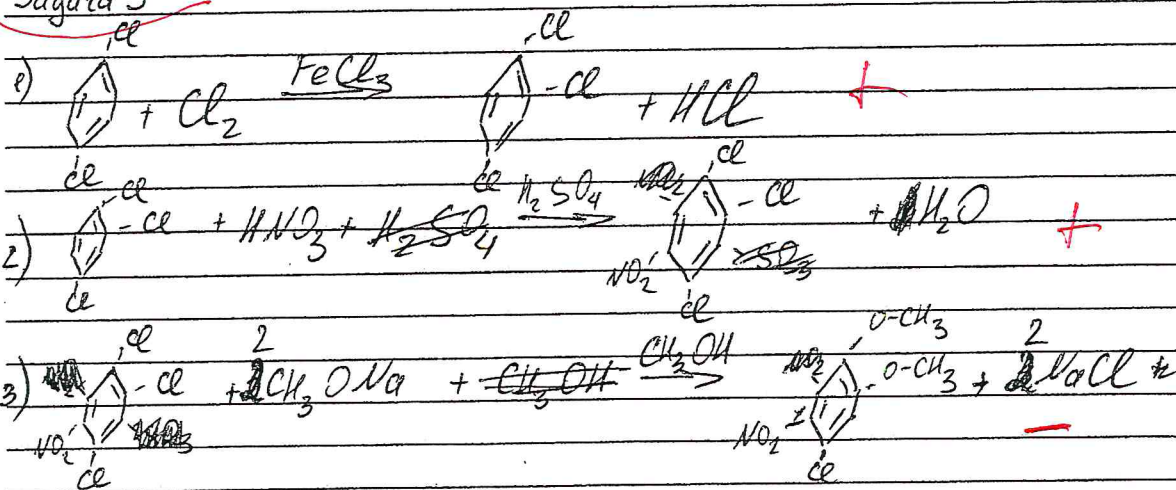 Задача 3
1) Cl Cl + Cl2 FeCl3 → Cl -Cl Cl + HCl +
2) Cl -Cl Cl + HNO3 + H2SO4 H2SO4 → NO2 Cl -Cl NO2 SO3 Cl + H2O +
3) Cl -Cl NO2 Cl + 2 CH3ONa + CH3OH CH3OH → NO2 O-CH3 O-CH3 NO2 Cl + 2 NaCl −